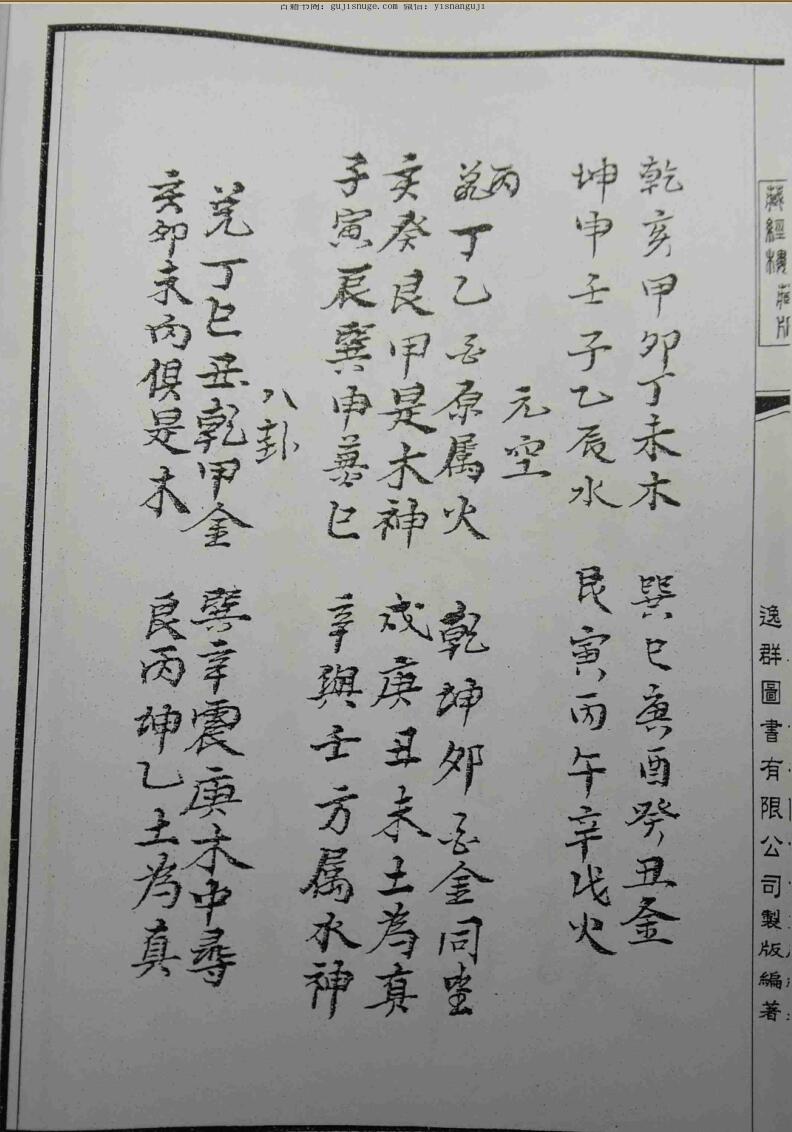 古籍书阁：gujishuge.com 微信：yishanguji
藏經樓 藏版
逸群圖書有限公司製版編著
乾亥甲卯丁未木 巽巳庚酉癸丑金
坤申壬子乙辰水 艮寅丙午辛戌火
元空
丙
丁乙酉原属火 乾坤卯酉金同坐
亥癸艮甲是木神 戌庚丑未土為真
子寅辰巽申兼巳 辛與壬方属水神
八卦
兑丁巳丑乾甲金 巽辛震庚木中尋
亥卯未丙俱是木 艮丙坤乙土為真